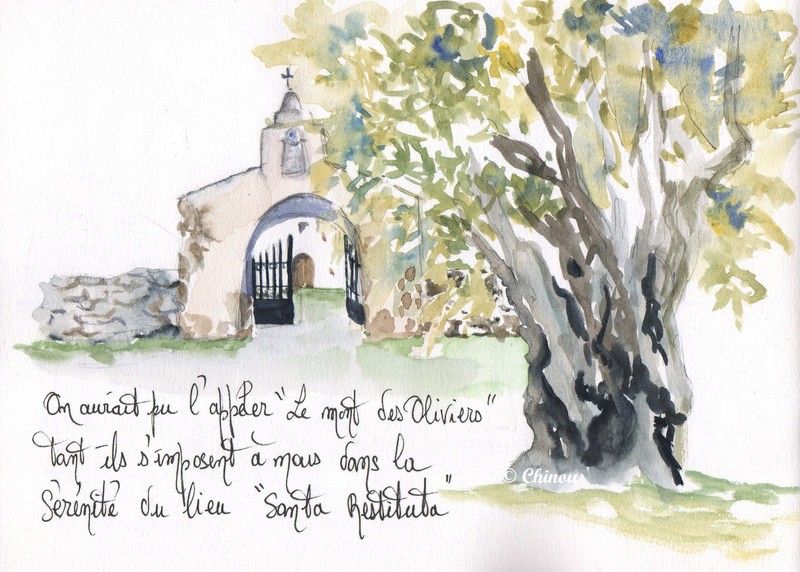 On aurait pu l'appeler "Le mont des Oliviers"
tant ils s'imposent à nous dans la
Sérénité du lieu "Santa Restituta"
© Chinou